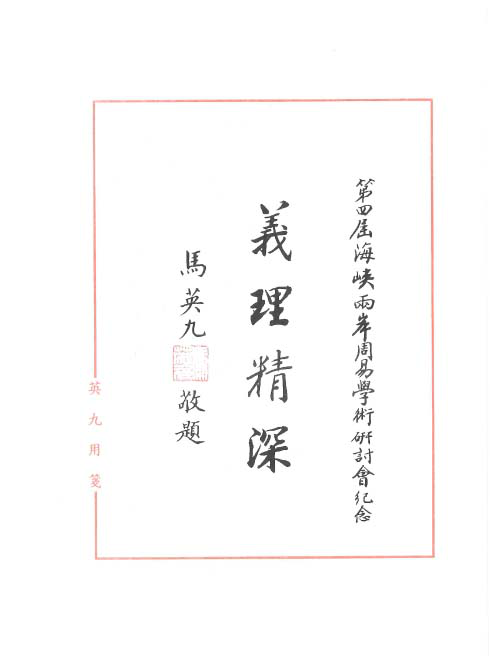 第四屆海峽兩岸周易學術研討會紀念
義理精深
馬英九
敬題
英九用箋